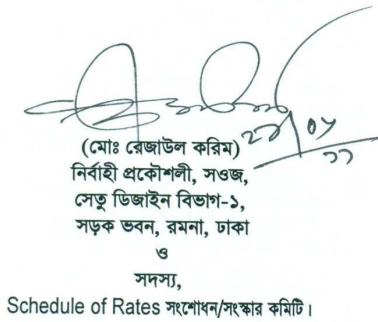 (মোঃ রেজাউল করিম)
নির্বাহী প্রকৌশলী, সওজ,
সেতু ডিজাইন বিভাগ-১,
সড়ক ভবন, রমনা, ঢাকা
ও
সদস্য,
Schedule of Rates সংশোধন/সংস্কার কমিটি।